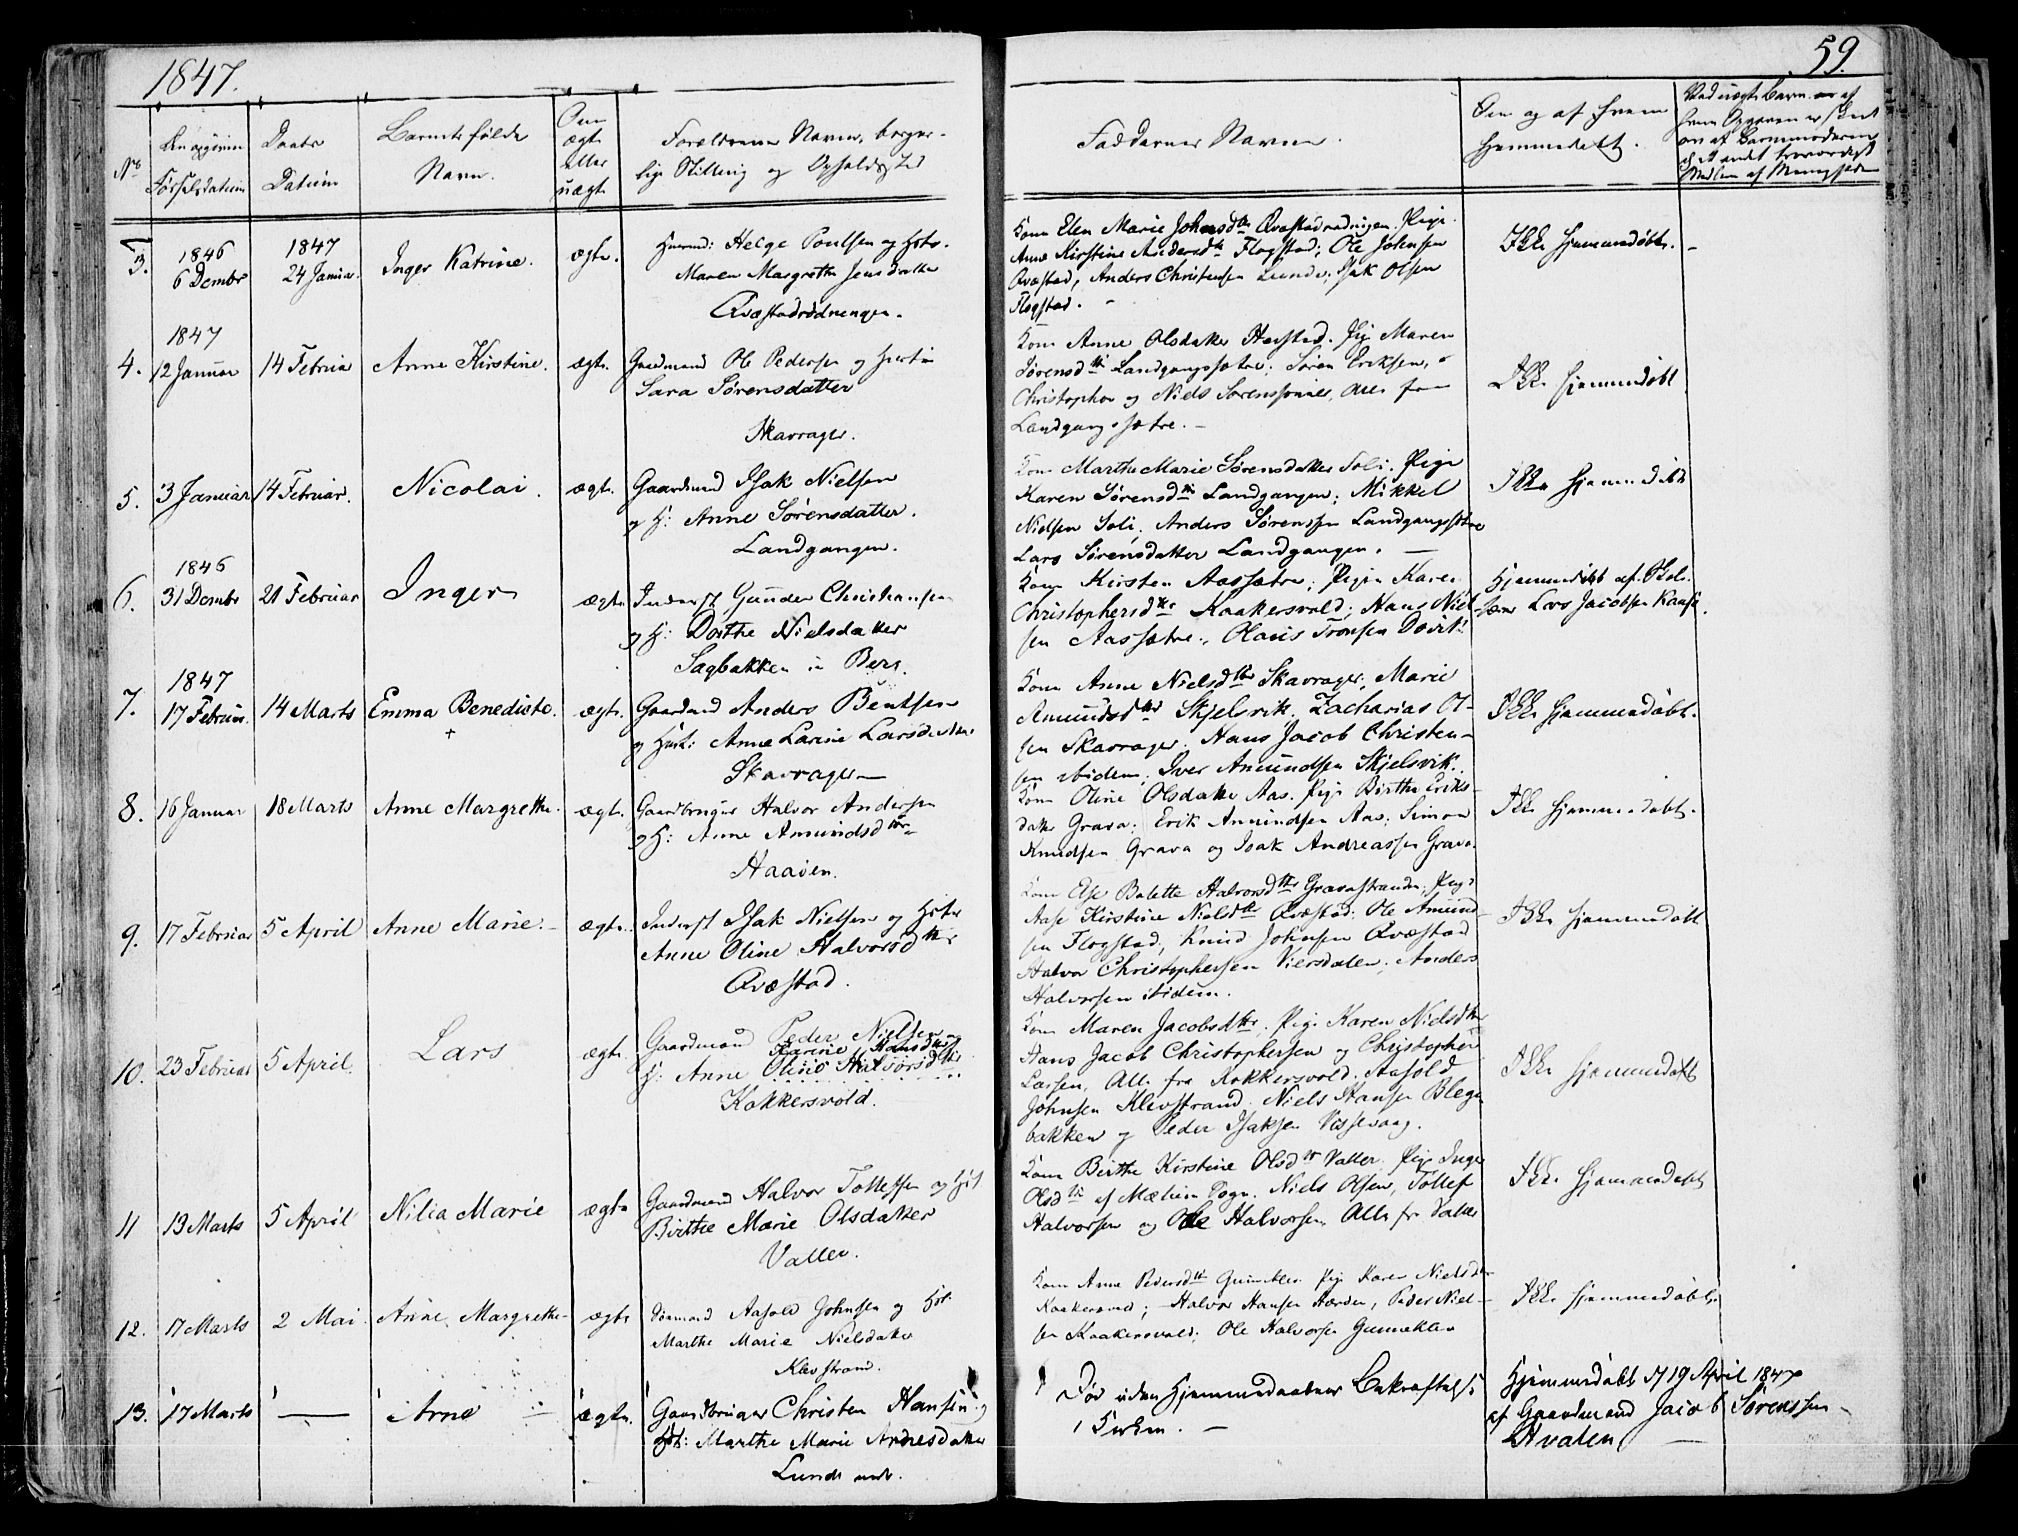 1847.
59.
No
Den opgivne
Fødselsdatum
Daabs
Datum
Barnets fulde
Navn.
Om
ægte
eller
uægte
Forældrenes Navne, borger-
lige Stilling og Opholdssted
Faddernes Navne.
Om og af hvem
hjemmedøbt.
3. 1846 6 Decmbr
1847 24 Januar
Inger Katrine.
ægte.
Huusmd: Helge Poulsen og Hstr.
Maren Margrethe Jensdatter
Qvæstadrødningen.
Kone Elen Marie Johnsdtr Qvæstadrødnigen. Pige
Anne Kirstine Andersdtr Flogstad; Ole Johnsen
Qvæstad, Anders Christensen Lunde; Isak Olsen
Flogstad.
Ikke hjemmedøbt.
4. 1847 12 Januar
14 Februar
Anne Kirstine.
ægte.
Gaardmand Ole Pedersen og Hustru
Sara Sørensdatter
Skavrager.
Kone Anne Olsdatter Pige Maren
Sørensdtr Landgangssætre; Søren Eriksen,
Christopher og Niels Sørenssønner, Alle fra
Landgangssætre.
Ikke hjemmedøbt
5. 3 Januar
14 Februar.
Nicolai.
ægte.
Gaardmand Isak Nielsen
og H: Anne Sørensdatter.
Landgangen.
Kone Marthe Marie Sørensdatter Soli. Pige
Karen Sørensdtr Landgangen; Mikkel
Nielsen Soli, Anders Sørensen Landgangssætre
Lars Sørensdatter Landgangen.
Ikke hjemmedøbt
6. 1846 31 Decmbr
21 Februar
Inger
ægte
Inderst Gunder Christiansen
og H: Dorthe Nielsdatter
Sagbakken i Berg.
Kone Kirsten Aassætre; Pigen Karen
Christophersdtr Kaakersvold; Hans Niel-
sen Aassætre., Olaus Tronsen
Hjemmedøbt af Skole-
lærer Lars Jacobsen
7. 1847 17 Februar.
14 Marts
Emma Benedicte.
+
ægte.
Gaardmd Anders Bentsen
og Hust: Anne Larine Larsdatter
Skavrager
Kone Anne Nielsdtr Skavrager, Marie
Amundsdtr Skjelsvik. Zacharias Ol-
sen Skavrager. Hans Jacob Christen-
sen ibidem, Iver Amundsen Skjelsvik.
Ikke hjemmedøbt.
8. 16 Januar
18 Marts
Anne Margrethe.
ægte.
Gaardbruger Halvor Andersen
og H: Anne Amundsdtr
Haaøen.
Kone Oline Olsdatter Aas. Pige Birthe Eriks-
datter Grava; Erik Amundsen Aas; Simon
Knudsen Grava og Isak Andreassen Grava.
Ikke hjemmedøbt.
9. 17 Februar
5 April
Anne Marie.
ægte.
Inderst Isak Nielsen og Hstr
Anne Oline Halvorsdtr
Qvæstad.
Kone Else Bolette Halvorsdtr Gravastranden, Pige
Aase Kirstine Nielsdtr Qvæstad; Ole Amund-
sen Flogstad, Knud Johnsen Qvæstad
Halvor Christophersen Viersdalen; Anders
Halvorsen ibidem.
Ikke hjemmedøbt
10. 23 Februar
5 April.
Lars
ægte.
Gaardmand Peder Nielsen og
Karine Hansdtr
H: Anne Oline Halvorsdtr
Kokkersvold.
Kone Maren Jacobsdtr. Pige Karen Nielsdtr
Hans Jacob Christophersen og Christopher
Larsen, Alle fra Kokkersvold. Aasold
Johnsen Klevstrand. Niels Hansen Blege-
bakken og Peder Isaksen Vissevaag.
Ikke hjemmedøbt
11 13 Marts
5 April
Nilia Marie
ægte
Gaardmand Halvor Tollefsen og Hst
Birthe Marie Olsdatter
Valler.
Kone Birthe Kirstine Olsdtr Valler. Pige Inge
Olsdtr af Mælum Sogn. Niels Olsen, Tollef
Halvorsen og Ole Halvorsen Alle fra Valler
Ikke hjemmedøbt
12. 17 Marts
2 Mai
Anne Margrethe
ægte
Aasold Johnsen og Hst:
Marthe Marie Nielsdatter
Klevstrand.
Kone Anne Pedersdtr Gunneklev. Pige Karen Nielsdtr
Kaakersvold; Halvor Hansen Herøen, Peder Niel-
sen Kaakersvold; Ole Halvorsen Gunneklev
Ikke hjemmedøbt.
13. 17 Marts
—
Arne
ægte.
Gaardbruger Christen Hansen og
Hst: Marthe Marie Andersdatter
Lunde
Død uden Hjemmedaabens Bekræftelse
i Kirken.
Hjemmedøbt 19 April 1847
af Gaardmand Jacob Sørenssen